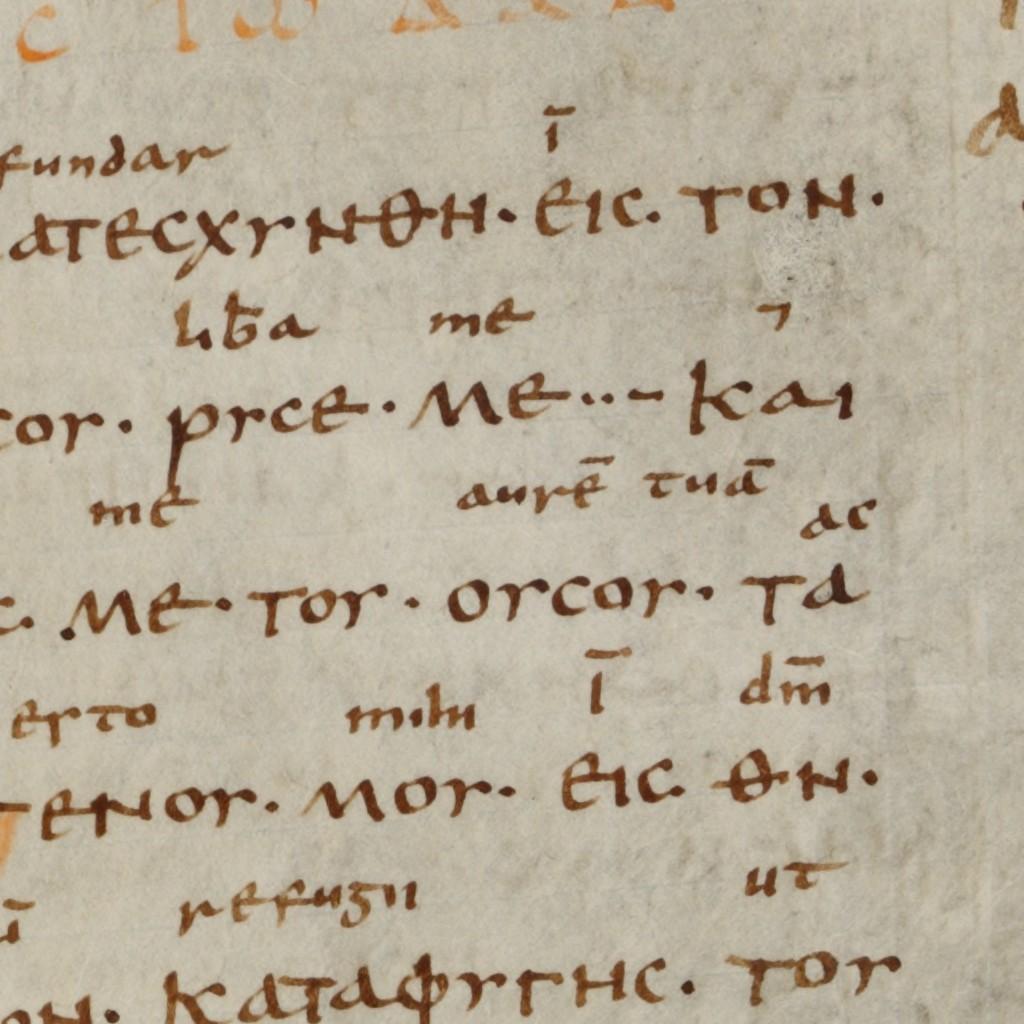 fundar ī
ΑΤΕCΧΥΝΘΗ· ΕΙC· ΤΟΝ·
lib̄a me ⁊
COΥ· ΡΥCΕ· ΜΕ··- ΚΑΙ
me aurē tuā ac
C· ΜΕ· ΤΟΥ· ΟΥCΟΥ· ΤΑ
erto mihi ī dm̄
ΤΕΝΟΥ· ΜΟΥ· ΕΙC· ΘΝ·
refugii ut
ΩΝ· ΚΑΤΑΦΥΓΗC· ΤΟΥ